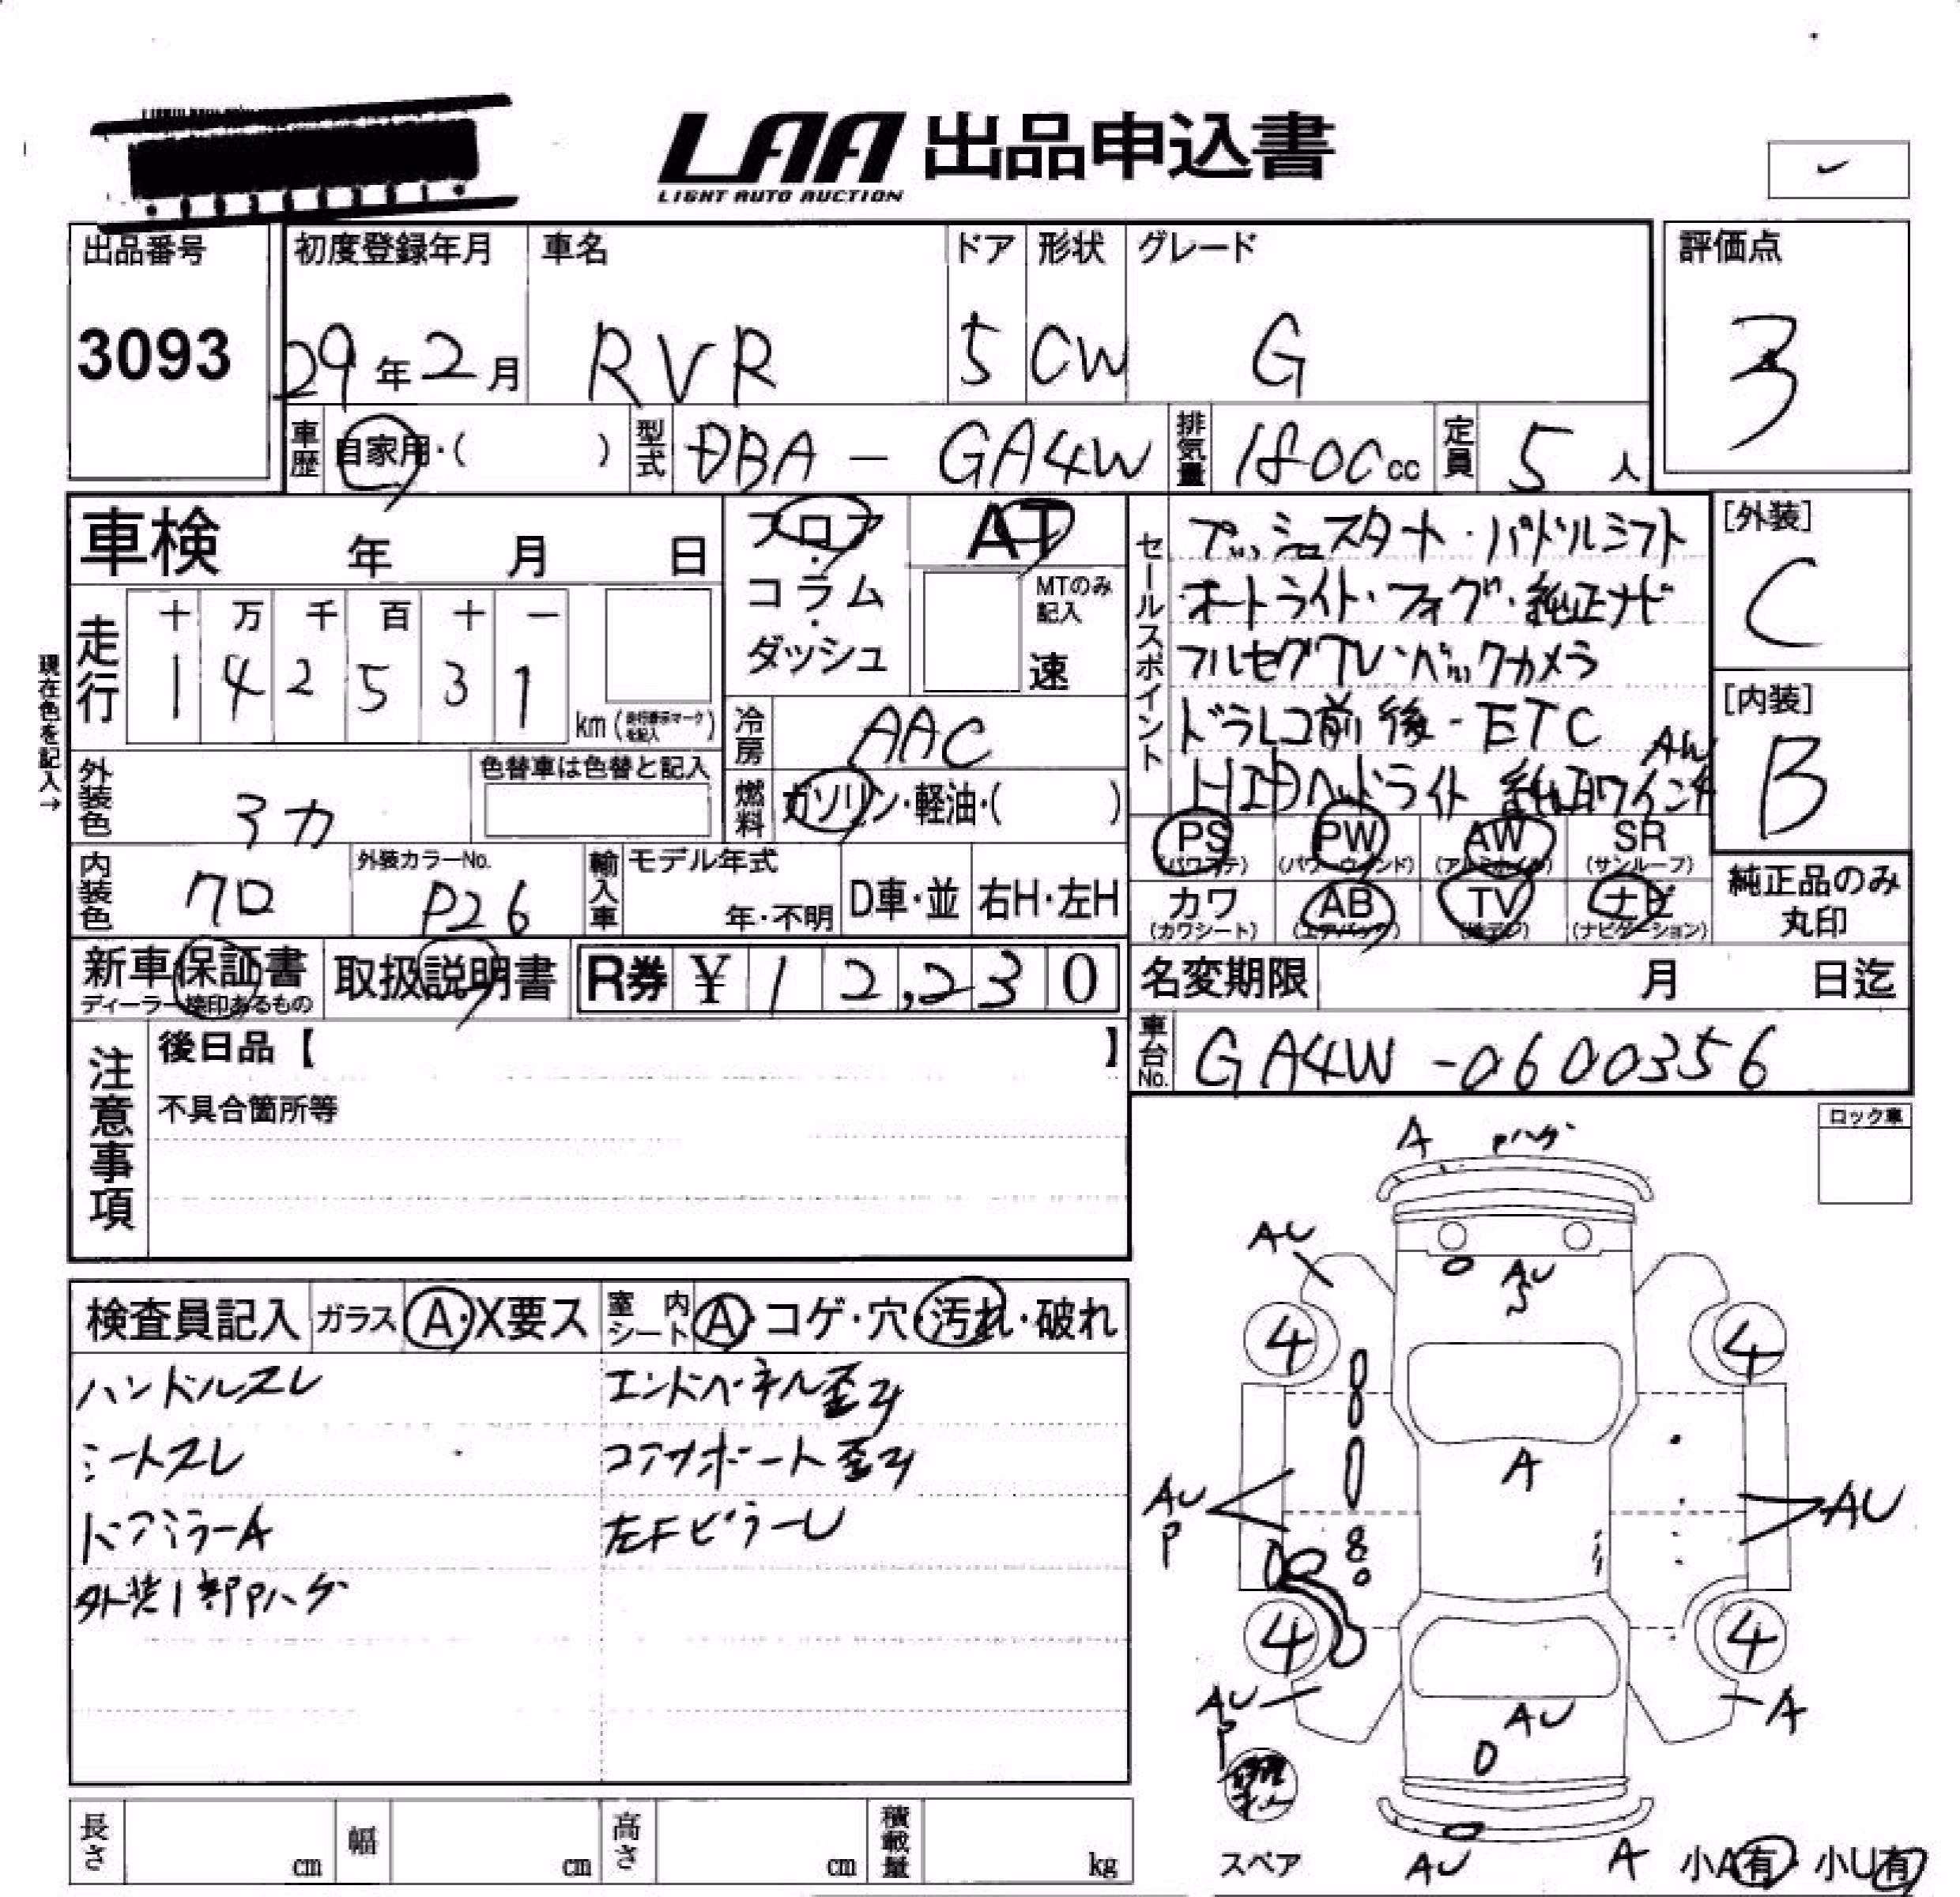 LAA 出品申込書
LIGHT AUTO AUCTION
出品番号
3093
初度登録年月
29年2月
車名
RVR
ドア
5
形状
CW
グレード
G
評価点
3
車歴
自家用・( )
型式
DBA - GA4W
排気量
1800cc
定員
5人
車検 年 月 日
フロア
・
コラム
・
ダッシュ
AT
MTのみ
記入
速
セールスポイント
プッシュスタート・パドルシフト
オートライト・フォグ・純正ナビ
フルセグTV・バックカメラ
ドラレコ前後・ETC
HIDヘッドライト 純正17インチ
AW
[外装]
C
[内装]
B
現在色を記入→
走行
十 万 千 百 十 一
1 4 2 5 3 1
km (走行表示マークを記入)
冷房
AAC
外装色
シカ
色替車は色替と記入
燃料
ガソリン・軽油・( )
PS
(パワステ)
PW
(パワーウィンド)
AW
(アルミホイル)
SR
(サンルーフ)
カワ
(カワシート)
AB
(エアバッグ)
TV
(地デジ)
ナビ
(ナビゲーション)
純正品のみ
丸印
内装色
クロ
外装カラーNo.
P26
輸入車
モデル年式
年・不明
D車・並
右H・左H
新車保証書
ディーラー検印あるもの
取扱説明書
R券 ¥12,230
名変期限 月 日迄
注意事項
後日品【 】
不具合箇所等
車台No.
GA4W-0600356
ロック車
検査員記入
ガラス A・X要ス
室内シート A・コゲ・穴・汚れ・破れ
ハンドルスレ
シートスレ
ドアミラーA
外装1部Pハゲ
エンドパネル歪み
コアサポート歪み
左FピラーU
A Pハゲ
AU
AU
4
4
A
AU
P
AU
4
4
AU
P
A
AU
スペア
AU
A
小A有・小U有
長さ cm
幅 cm
高さ cm
積載量 kg